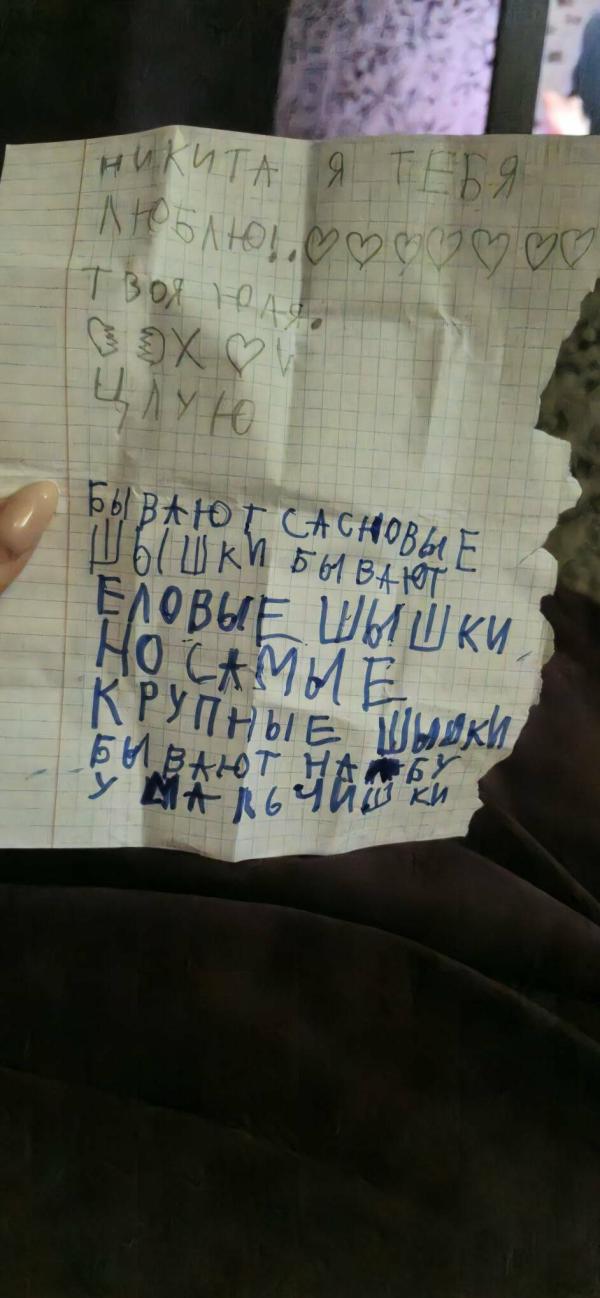 НИКИТА Я ТЕБЯ
ЛЮБЛЮ!..♡♡♡♡♡♡♡
ТВОЯ ЮЛЯ.
ЦЛУЮ
БЫВАЮТ САСНОВЫЕ
ШЫШКИ БЫВАЮТ
ЕЛОВЫЕ ШЫШКИ
НО САМЫЕ
КРУПНЫЕ ШЫШКИ
БЫВАЮТ НА ЛБУ
У МАЛЬЧИШКИ